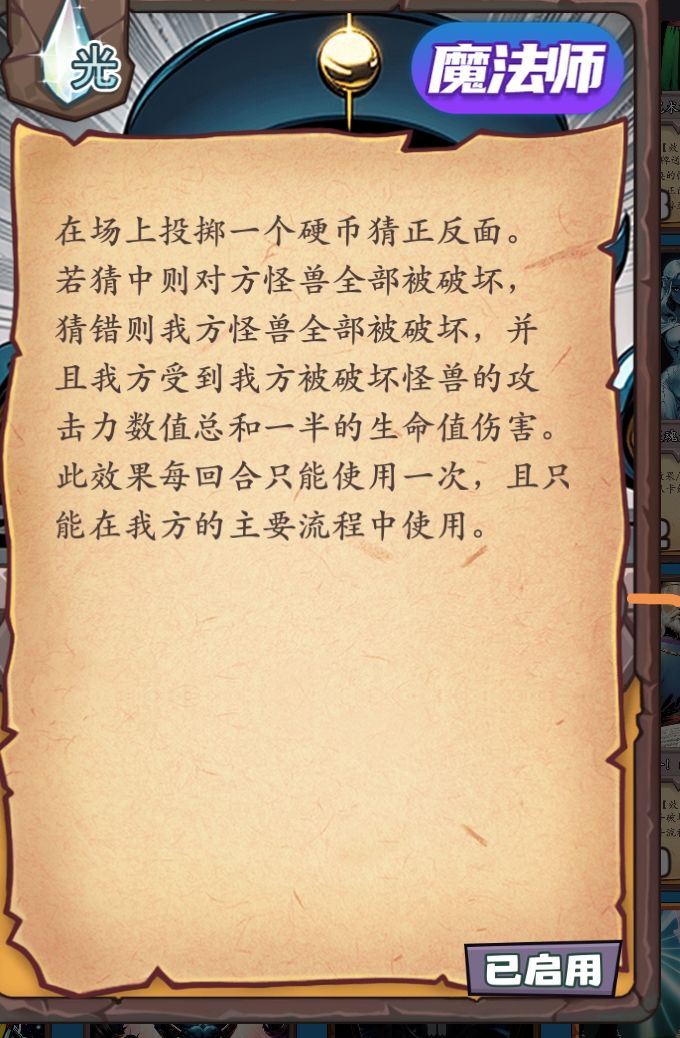 光
魔法师
在场上投掷一个硬币猜正反面。
若猜中则对方怪兽全部被破坏，
猜错则我方怪兽全部被破坏，并
且我方受到我方被破坏怪兽的攻
击力数值总和一半的生命值伤害。
此效果每回合只能使用一次，且只
能在我方的主要流程中使用。
已启用